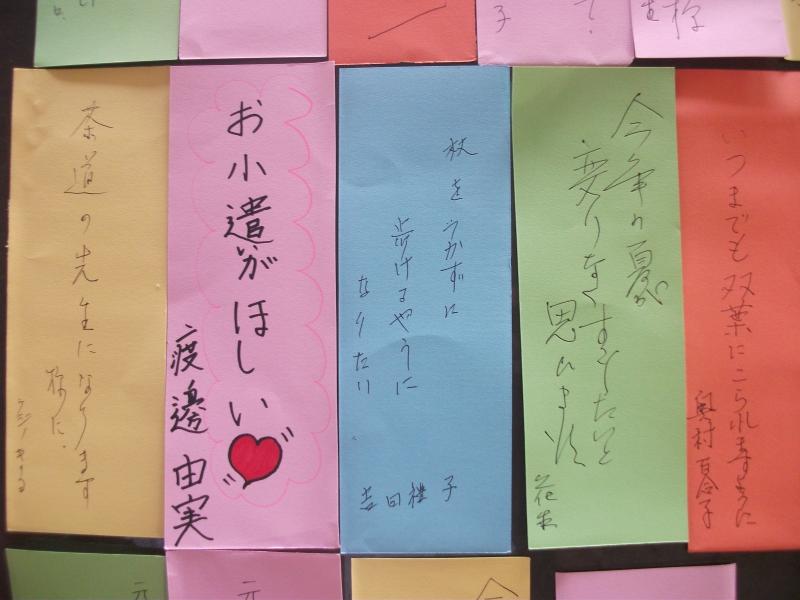 いつまでも双葉にこられますように
奥村百合子
今年の夏
変りなくすごしたいと
思います
杖をつかずに
歩けるやうに
なりたい
吉田禮子
お小遣いがほしい
渡邊由実
茶道の先生になります
様に.